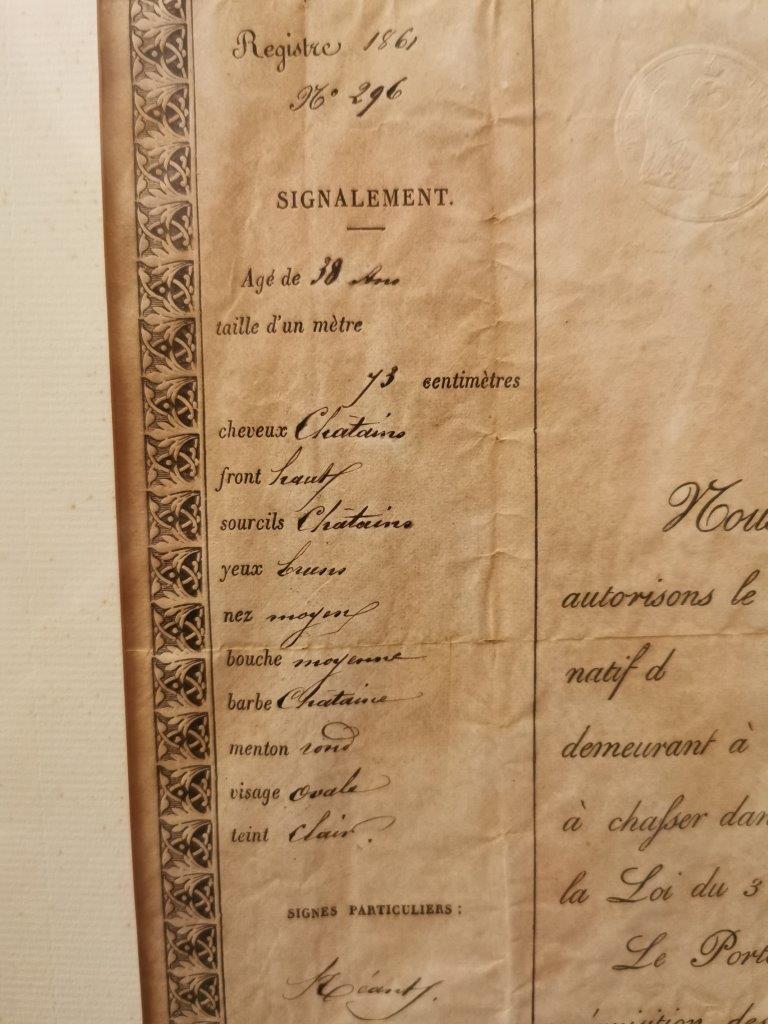 Registre 1861
N° 296
SIGNALEMENT.
Agé de 38 Ans
taille d'un mètre
73 centimètres
cheveux Châtains
front haut
sourcils Châtains
yeux bruns
nez moyen
bouche moyenne
barbe Chataine
menton rond
visage ovale
teint clair.
SIGNES PARTICULIERS :
Néant.
Nous
autorisons le
natif d
demeurant à
à chasser dan
la Loi du 3
Le Porte